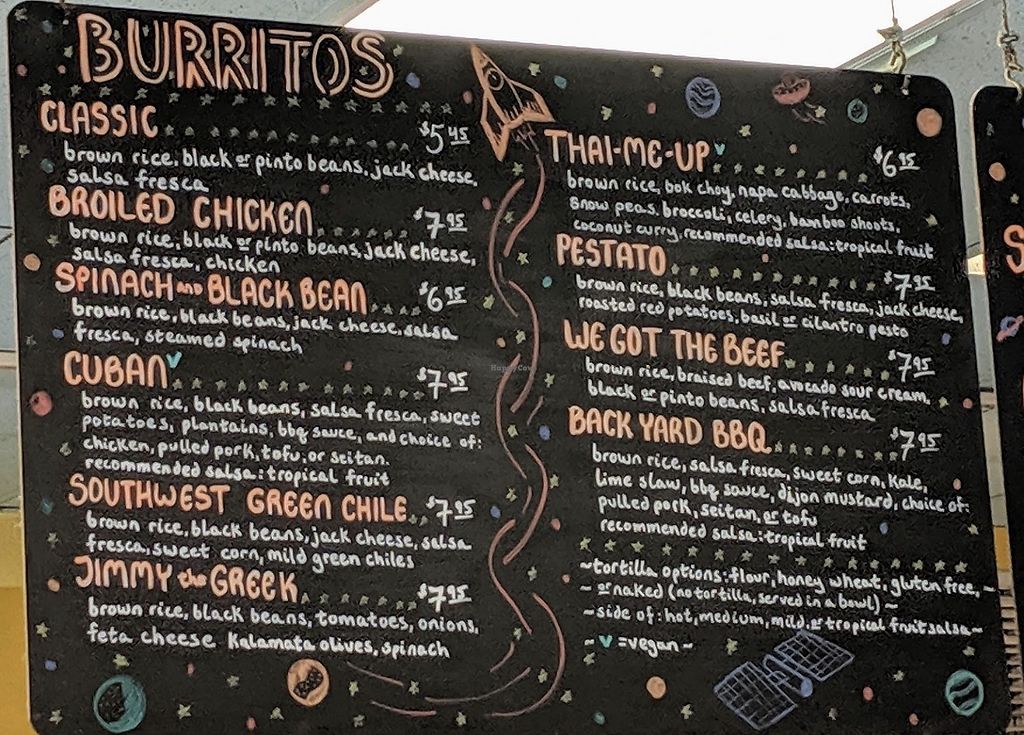 BURRITOS
CLASSIC $5.45
brown rice, black or pinto beans, jack cheese,
salsa fresca
BROILED CHICKEN $7.95
brown rice, black or pinto beans, jack cheese,
salsa fresca, chicken
SPINACH and BLACK BEAN $6.95
brown rice, black beans, jack cheese, salsa
fresca, steamed spinach
CUBAN V $7.95
brown rice, black beans, salsa fresca, sweet
potatoes, plantains, bbq sauce, and choice of:
chicken, pulled pork, tofu, or seitan.
recommended salsa: tropical fruit
SOUTHWEST GREEN CHILE $7.95
brown rice, black beans, jack cheese, salsa
fresca, sweet corn, mild green chiles
JIMMY the GREEK $7.95
brown rice, black beans, tomatoes, onions,
feta cheese kalamata olives, spinach
THAI-ME-UP V $6.95
brown rice, bok choy, napa cabbage, carrots,
snow peas, broccoli, celery, bamboo shoots,
coconut curry, recommended salsa: tropical fruit
PESTATO $7.95
brown rice, black beans, salsa fresca, jack cheese,
roasted red potatoes, basil or cilantro pesto
WE GOT THE BEEF $7.95
brown rice, braised beef, avocado sour cream,
black or pinto beans, salsa fresca
BACK YARD BBQ $7.95
brown rice, salsa fresca, sweet corn, kale,
lime slaw, bbq sauce, dijon mustard, choice of:
pulled pork, seitan, or tofu
recommended salsa: tropical fruit
~tortilla options: flour, honey wheat, gluten free,~
~ or naked (no tortilla, served in a bowl) ~
~side of: hot, medium, mild or tropical fruit salsa~
~ V = vegan ~
HappyCow
S